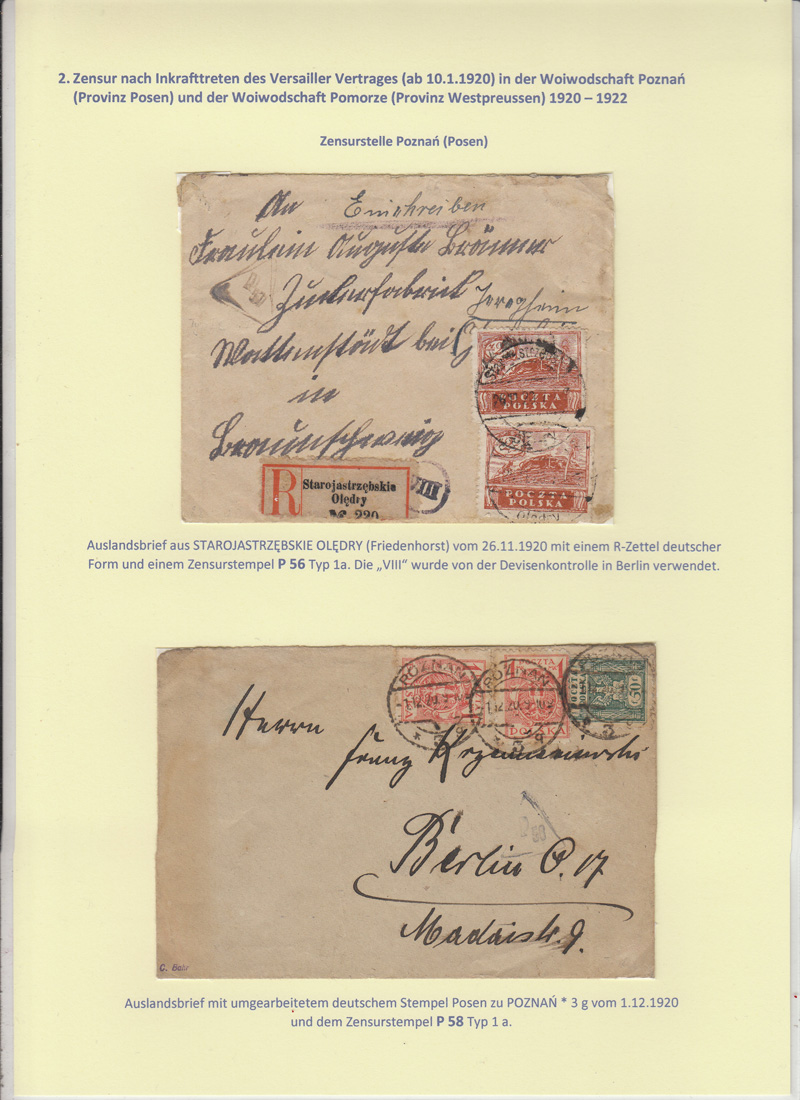 2. Zensur nach Inkrafttreten des Versailler Vertrages (ab 10.1.1920) in der Woiwodschaft Poznań
(Provinz Posen) und der Woiwodschaft Pomorze (Provinz Westpreussen) 1920 – 1922
Zensurstelle Poznań (Posen)
An Einschreiben
Fräulein Auguste Brünner
Zuckerfabrik
Wattenstädt bei
in
Braunschweig
POCZTA
POLSKA
POCZTA
POLSKA
R
Starojastrzębskie
Olędry
№ 220
VIII
Auslandsbrief aus STAROJASTRZĘBSKIE OLĘDRY (Friedenhorst) vom 26.11.1920 mit einem R-Zettel deutscher
Form und einem Zensurstempel P 56 Typ 1a. Die „VIII" wurde von der Devisenkontrolle in Berlin verwendet.
POZNAŃ POZNAŃ
1.12.20.9-10V 1.12.20.9-10V
* 3 g * 3 g
POLSKA
50
Herrn
Franz
Berlin O. 17
Madaistr. 9.
C. Bahr
Auslandsbrief mit umgearbeitetem deutschem Stempel Posen zu POZNAŃ * 3 g vom 1.12.1920
und dem Zensurstempel P 58 Typ 1 a.